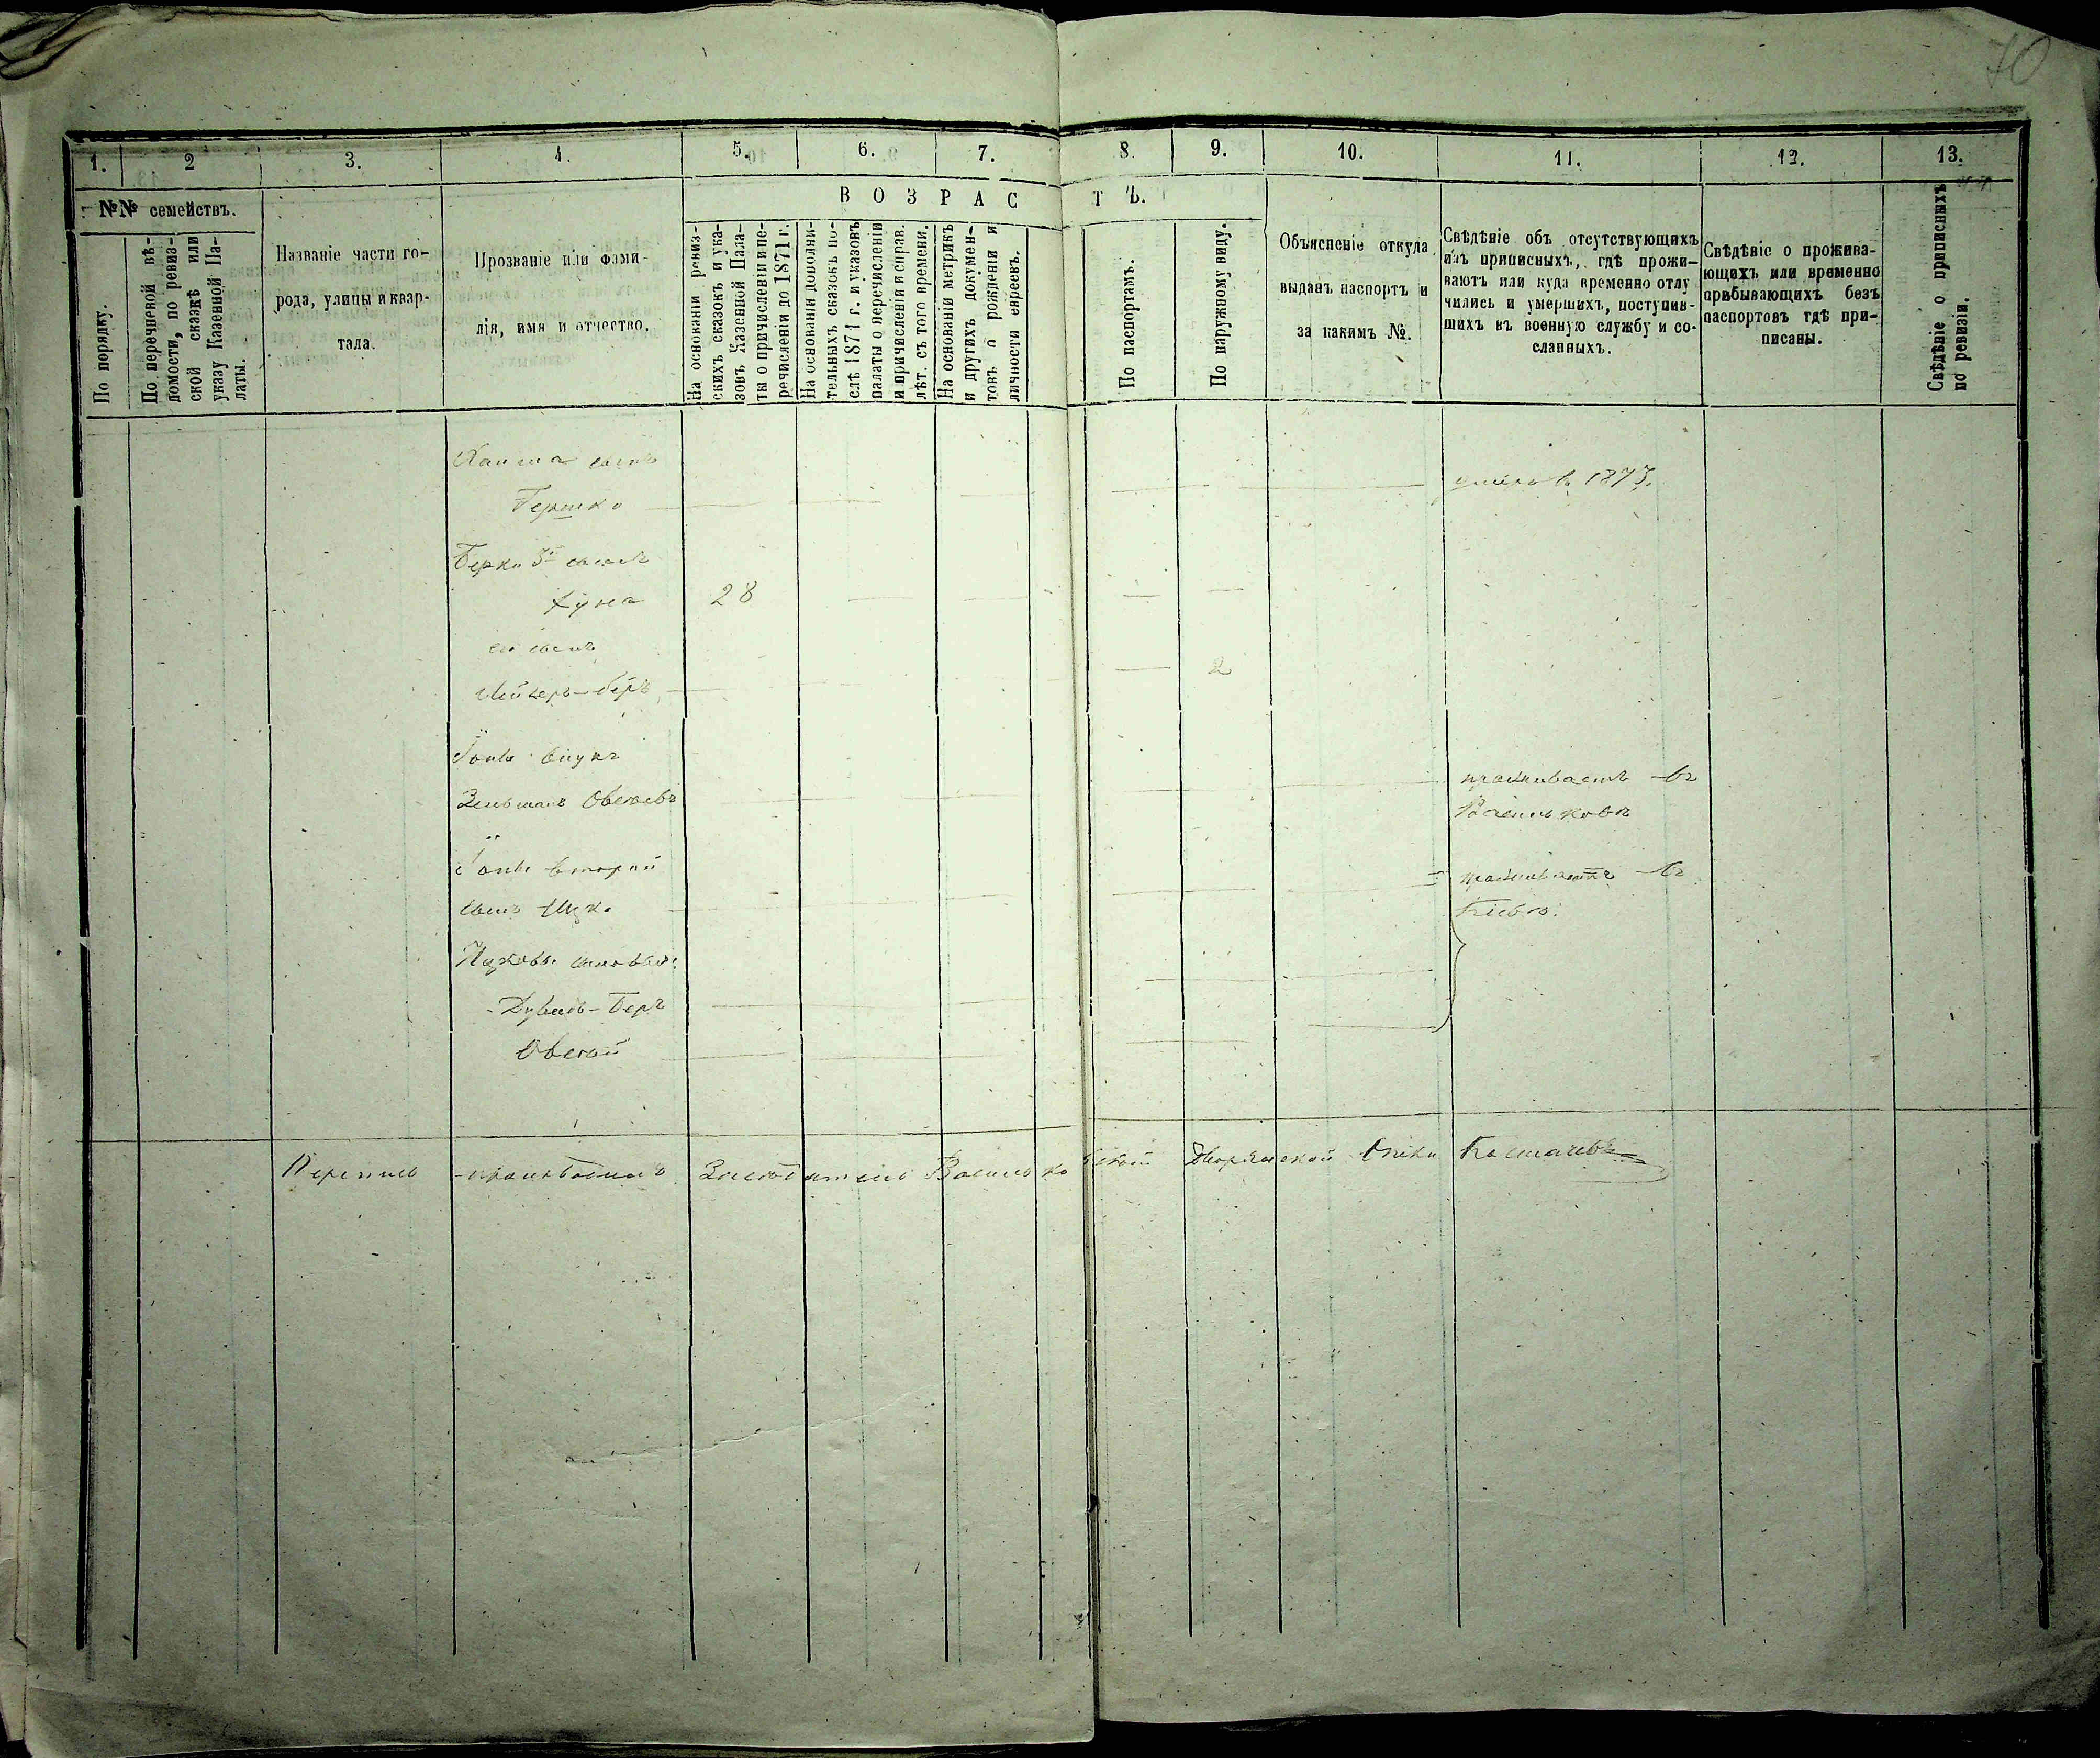 70
1. 2 3. 4. 5. 6. 7. 8. 9. 10. 11. 12. 13.
№№ семействъ.
По порядку.
По перечневой вѣ-
домости, по ревиз-
ской сказкѣ или
указу Казенной Па-
латы.
Названіе части го-
рода, улицы и квар-
тала.
Прозваніе или фами-
лія, имя и отчество.
ВОЗРАСТЪ.
На основаніи ревиз-
скихъ сказокъ и ука-
зовъ Казенной Пала-
ты о причисленіи и пе-
речисленіи до 1871 г.
На основаніи дополни-
тельныхъ сказокъ по-
слѣ 1871 г. и указовъ
палаты о перечисленіи
и причисленіи и справ.
лѣт. съ того времени.
На основаніи метрикъ
и другихъ докумен-
товъ о рожденіи и
личности евреевъ.
По паспортамъ.
По наружному виду.
Объясненіе откуда
выданъ паспортъ и
за какимъ №.
Свѣдѣніе объ отсутствующихъ
изъ приписныхъ, гдѣ прожи-
ваютъ или куда временно отлу
чились и умершихъ, поступив-
шихъ въ военную службу и со-
сланныхъ.
Свѣдѣніе о прожива-
ющихъ или временно
прибывающихъ безъ
паспортовъ гдѣ при-
писаны.
Свѣдѣніе о приписныхъ
по ревизіи.
сынъ
Гершко
умеръ въ 1873.
Берки 3й сынъ
Хуна 28
его сынъ
Лейзеръ-Беръ 2
внукъ
Зельманъ Овсеевъ
проживаетъ въ
Васильковѣ
второй
сынъ Ицко
проживаетъ въ
Кіевѣ.
Ицковы сыновья:
Дувидъ-Беръ
Овсей
Перепись производилъ Засѣдатель Васильковской Дворянской Опеки